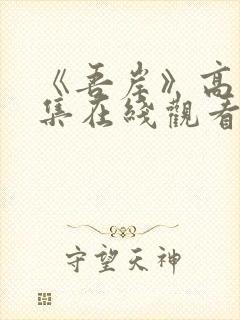 《吾岸》高
集在綫觀看
守望天神